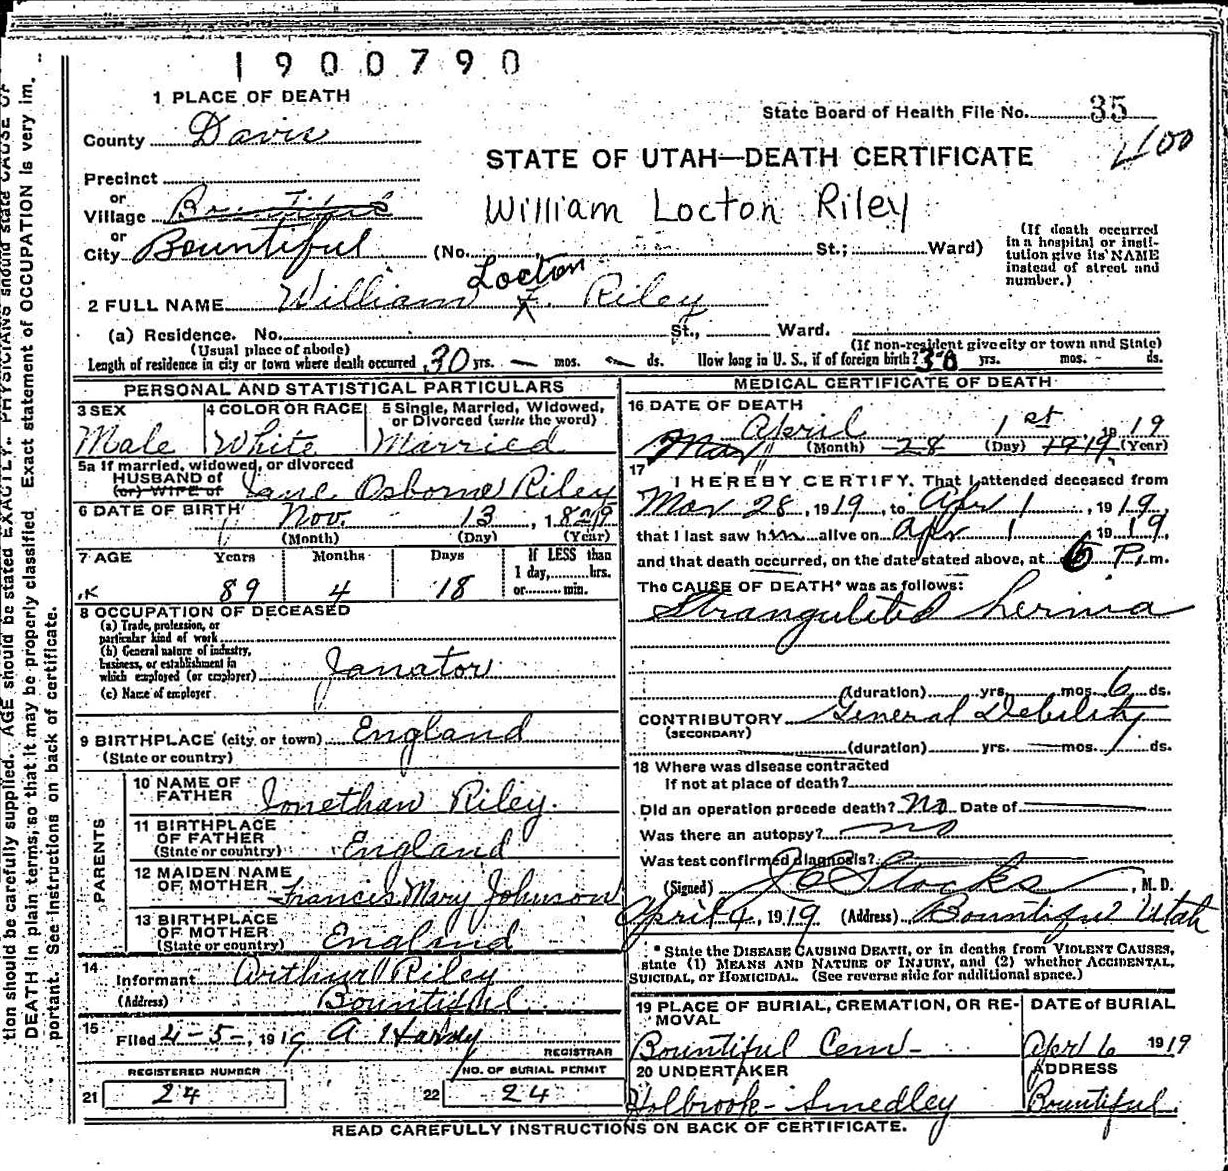 1900790
1 PLACE OF DEATH
State Board of Health File No. 35
400
County Davis
STATE OF UTAH—DEATH CERTIFICATE
Precinct
or
Village Bountiful
William Locton Riley
or
City Bountiful (No. St.; Ward)
(If death occurred in a hospital or institution give its NAME instead of street and number.)
Locton
2 FULL NAME William F. Riley
(a) Residence. No. St., Ward.
(Usual place of abode) (If non-resident give city or town and State)
Length of residence in city or town where death occurred 30 yrs. — mos. — ds. How long in U. S., if of foreign birth? 38 yrs. mos. - ds.
PERSONAL AND STATISTICAL PARTICULARS
3 SEX 4 COLOR OR RACE 5 Single, Married, Widowed, or Divorced (write the word)
Male White Married
5a If married, widowed, or divorced
HUSBAND of
(or) WIFE of Jane Osborne Riley
6 DATE OF BIRTH Nov. 13, 1829
(Month) (Day) (Year)
7 AGE Years Months Days If LESS than
1 day,.........hrs.
89 4 18 or.........min.
8 OCCUPATION OF DECEASED
(a) Trade, profession, or
particular kind of work
(b) General nature of industry,
business, or establishment in
which employed (or employer) Janator
(c) Name of employer
9 BIRTHPLACE (city or town) England
(State or country)
PARENTS
10 NAME OF
FATHER Jonethan Riley.
11 BIRTHPLACE
OF FATHER
(State or country) England
12 MAIDEN NAME
OF MOTHER Francis Mary Johnson
13 BIRTHPLACE
OF MOTHER
(State or country) England
14
Informant Arthur Riley
(Address) Bountiful
15
Filed 4-5-, 1919 A Hardy
REGISTRAR
REGISTERED NUMBER NO. OF BURIAL PERMIT
21 24 22 24
MEDICAL CERTIFICATE OF DEATH
16 DATE OF DEATH
April 1st 1919
Mar 28 1919
(Month) (Day) (Year)
17
I HEREBY CERTIFY, That I attended deceased from
Mar 28, 1919, to Apr 1, 1919,
that I last saw him alive on Apr 1 1919,
and that death occurred, on the date stated above, at 6 P. m.
The CAUSE OF DEATH* was as follows:
Strangulited hernia
(duration) yrs. mos. 6 ds.
CONTRIBUTORY General Debility
(SECONDARY)
(duration) yrs. mos. ds.
18 Where was disease contracted
If not at place of death?
Did an operation precede death? No Date of
Was there an autopsy? no
Was test confirmed diagnosis?
(Signed) J C Stocks, M. D.
April 4, 1919 (Address) Bountiful Utah
*State the DISEASE CAUSING DEATH, or in deaths from VIOLENT CAUSES,
state (1) MEANS AND NATURE OF INJURY, and (2) whether ACCIDENTAL,
SUICIDAL, or HOMICIDAL. (See reverse side for additional space.)
19 PLACE OF BURIAL, CREMATION, OR REMOVAL DATE of BURIAL
Bountiful Cem- Apr 6 1919
20 UNDERTAKER ADDRESS
Holbrook-Smedley Bountiful
READ CAREFULLY INSTRUCTIONS ON BACK OF CERTIFICATE.
tion should be carefully supplied. AGE should be stated EXACTLY. PHYSICIANS should state CAUSE OF
DEATH in plain terms, so that it may be properly classified. Exact statement of OCCUPATION is very im-
portant. See instructions on back of certificate.